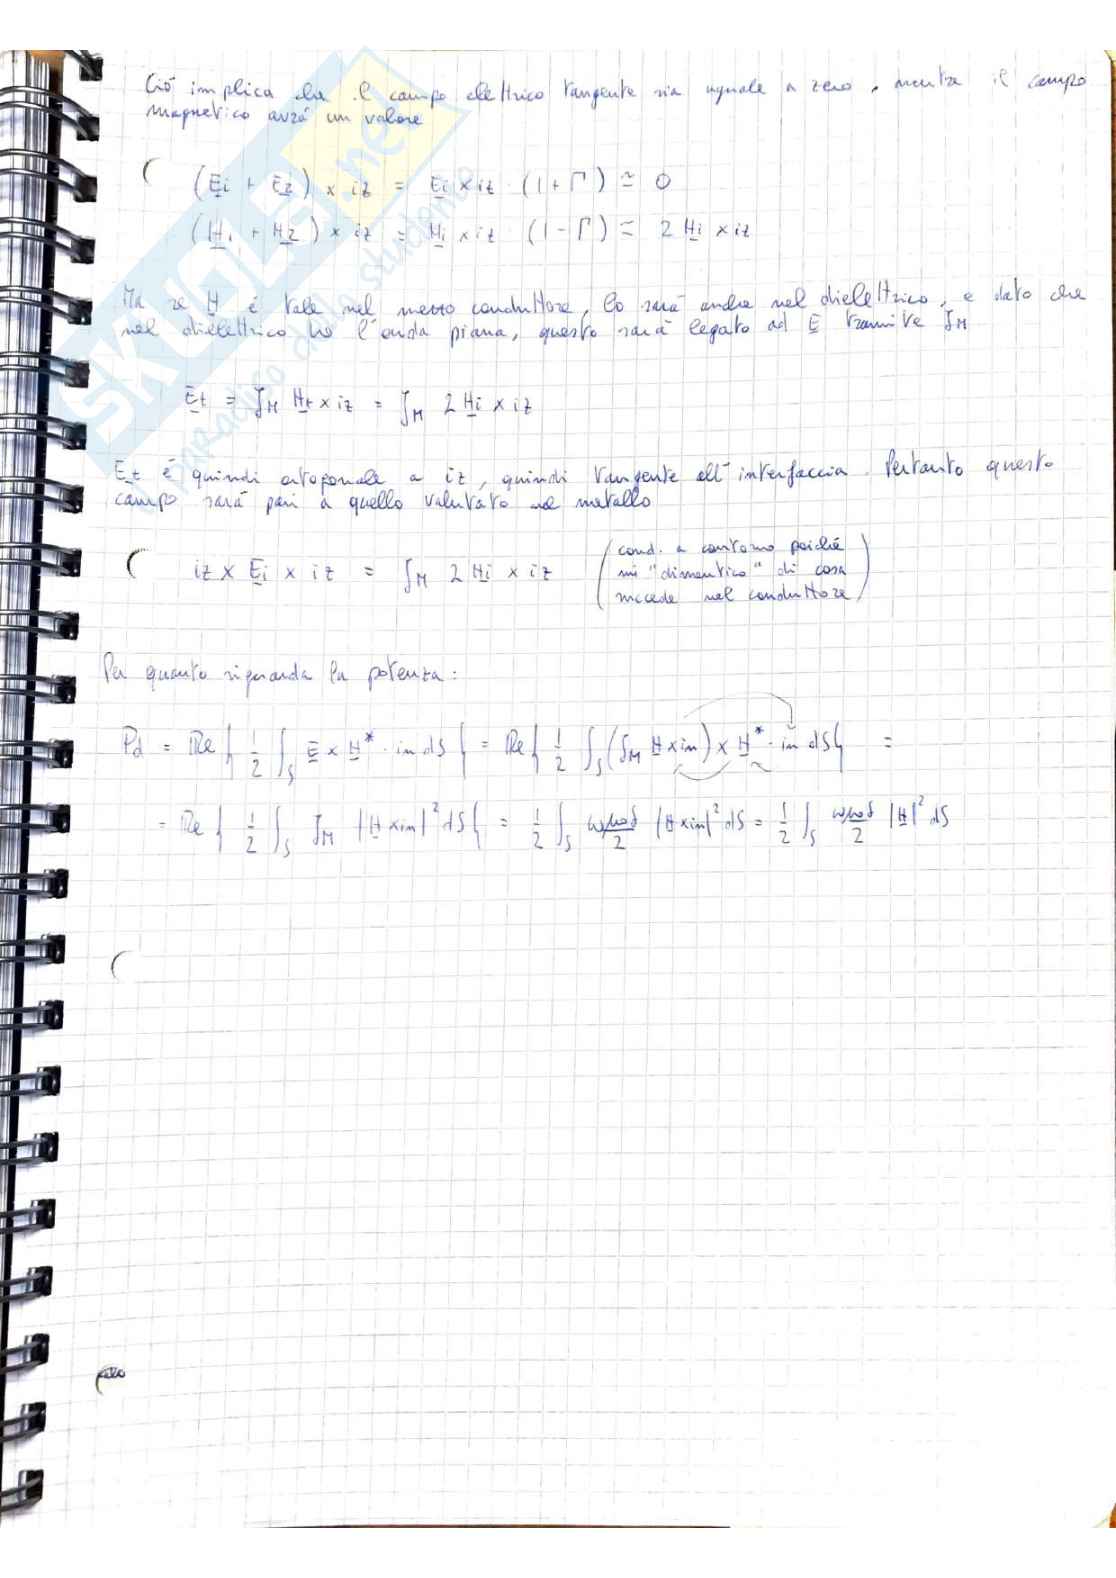 Ciò implica che il campo elettrico tangente sia uguale a zero, mentre il campo
magnetico avrà un valore
(E̲i + E̲r) × iz = E̲i × iz · (1 + Γ) ≃ 0
(H̲i + H̲r) × iz = H̲i × iz · (1 - Γ) ≃ 2 H̲i × iz
Ma se H̲ è tale nel mezzo conduttore, lo sarà anche nel dielettrico, e dato che
nel dielettrico ho l'onda piana, questo sarà legato ad E̲ tramite ζM
E̲t = ζM H̲t × iz = ζM 2 H̲i × iz
E̲t è quindi ortogonale a iz, quindi tangente all'interfaccia. Pertanto questo
campo sarà pari a quello valutato nel metallo
iz × E̲i × iz = ζM 2 H̲i × iz
(cond. a contorno poiché
mi "dimentico" di cosa
succede nel conduttore)
Per quanto riguarda la potenza:
Pd = Re { 1/2 ∫S E̲ × H̲* · in dS } = Re { 1/2 ∫S (ζM H̲ × in) × H̲* · in dS } =
= Re { 1/2 ∫S ζM |H̲ × in|² dS } = 1/2 ∫S ωμ0δ/2 |H̲ × in|² dS = 1/2 ∫S ωμ0δ/2 |H̲|² dS
SKUOLA.net
il paradiso dello studente